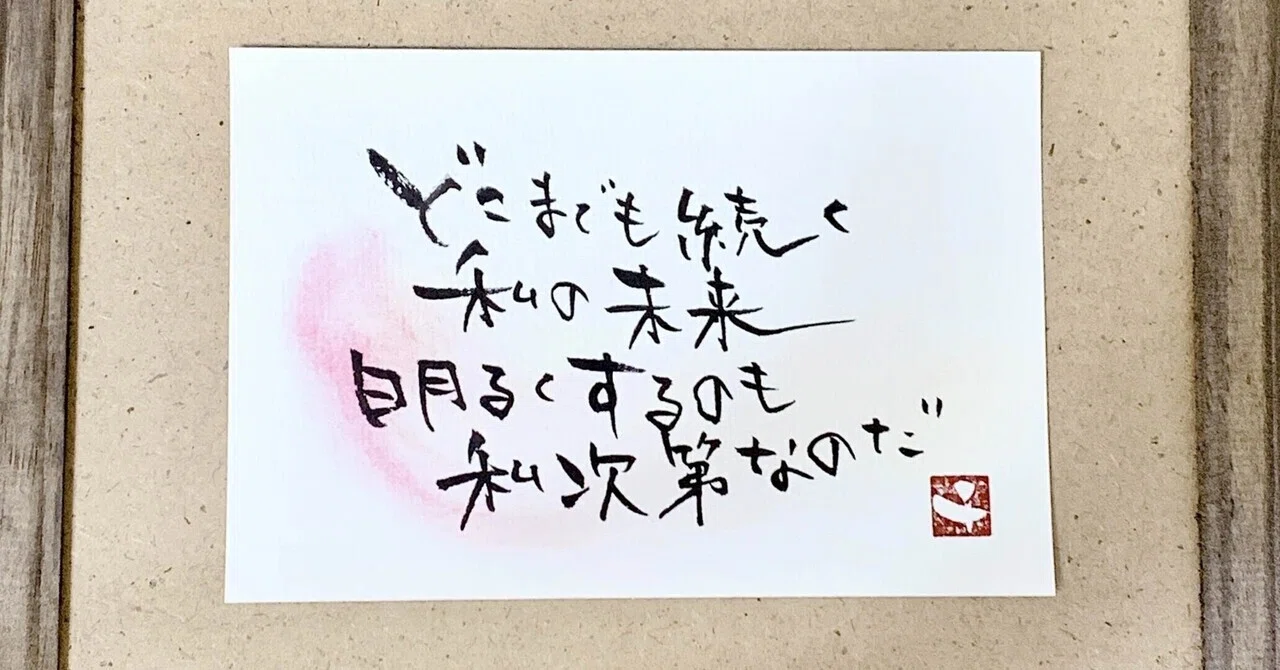 どこまでも続く
私の未来
明るくするのも
私次第なのだ